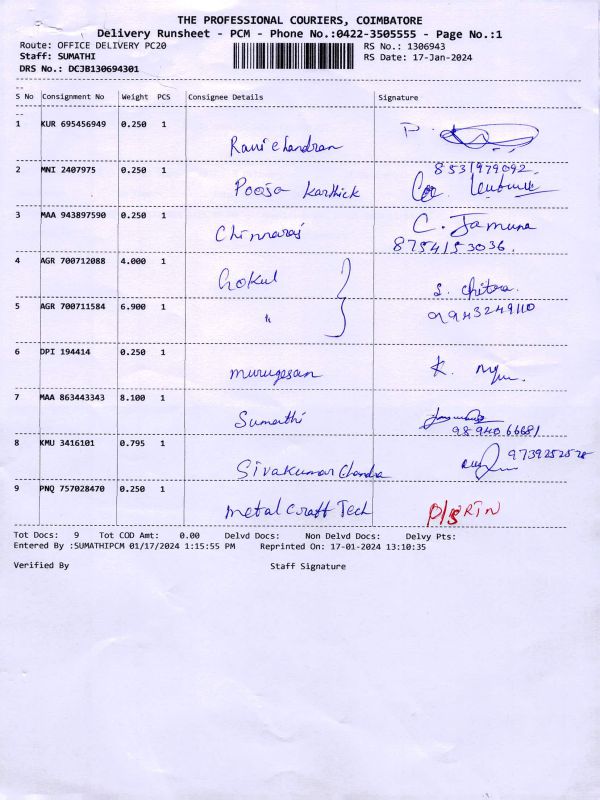 THE PROFESSIONAL COURIERS, COIMBATORE
Delivery Runsheet - PCM - Phone No.:0422-3505555 - Page No.:1
Route: OFFICE DELIVERY PC20 RS No.: 1306943
Staff: SUMATHI RS Date: 17-Jan-2024
DRS No.: DCJB130694301
S No Consignment No Weight PCS Consignee Details Signature
1 KUR 695456949 0.250 1 Ravichandran P.
8531979092.
2 MNI 2407975 0.250 1 Pooja Karthick
3 MAA 943897590 0.250 1 Chinnaraj C. Jamuna
8754153036.
4 AGR 700712088 4.000 1 Gokul S. Chitra
5 AGR 700711584 6.900 1 " 9943249110
6 DPI 194414 0.250 1 Murugesan K.
7 MAA 863443343 8.100 1 Sumathi
98940 66681
8 KMU 3416101 0.795 1 Sivakumar Chandra
9 PNQ 757028470 0.250 1 Metal Craft Tech RTN
Tot Docs: 9 Tot COD Amt: 0.00 Delvd Docs: Non Delvd Docs: Delvy Pts:
Entered By :SUMATHIPCM 01/17/2024 1:15:55 PM Reprinted On: 17-01-2024 13:10:35
Verified By Staff Signature